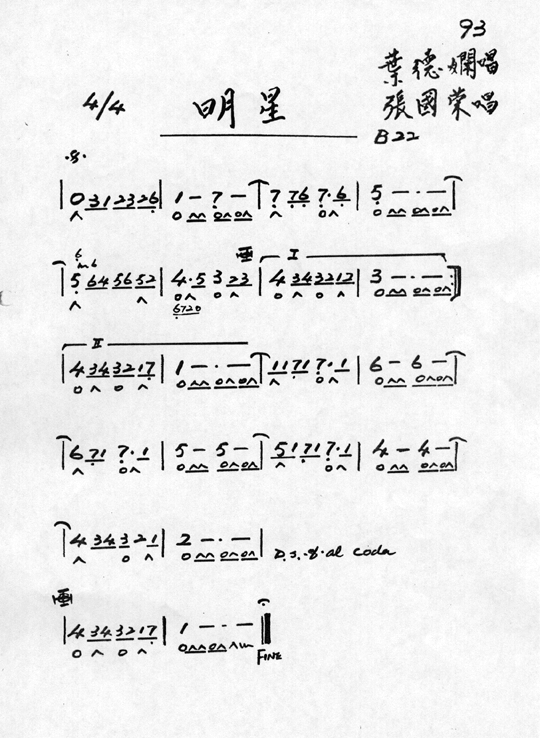 93
葉德嫻唱
張國荣唱
4/4 明星
B22
| 0 3 1 2 3 2 6 | 1 - 7 - | 7 7 6 7 · 6 | 5 - · - |
| 5 6 4 5 6 5 2 | 4 · 5 3 2 3 | I 4 3 4 3 2 1 2 | 3 - · - :||
6 7 2 0
II
| 4 3 4 3 2 1 7 | 1 - · - | 1 1 7 1 7 · 1 | 6 - 6 - |
| 6 7 1 7 · 1 | 5 - 5 - | 5 1 7 1 7 · 1 | 4 - 4 - |
| 4 3 4 3 2 1 | 2 - · - | D.S. al coda
| 4 3 4 3 2 1 7 | 1 - · - ||
FINE